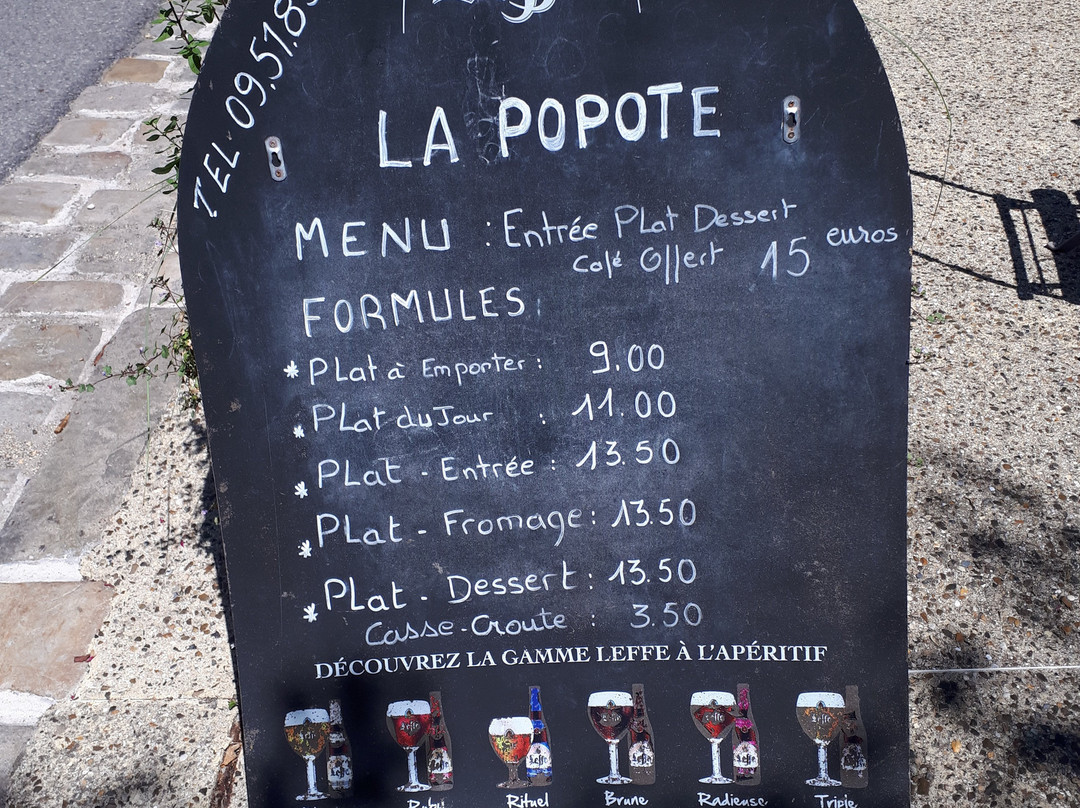 TEL 09.51.8
LA POPOTE
MENU : Entrée Plat Dessert
Café Offert 15 euros
FORMULES
* PLat à Emporter : 9.00
* PLat du Jour : 11.00
* PLat - Entrée : 13.50
* PLat - Fromage : 13.50
* PLat - Dessert : 13.50
Casse-Croute : 3.50
DÉCOUVREZ LA GAMME LEFFE À L'APÉRITIF
Leffe Leffe Leffe Leffe Leffe Leffe
Ruby Rituel Brune Radieuse Triple